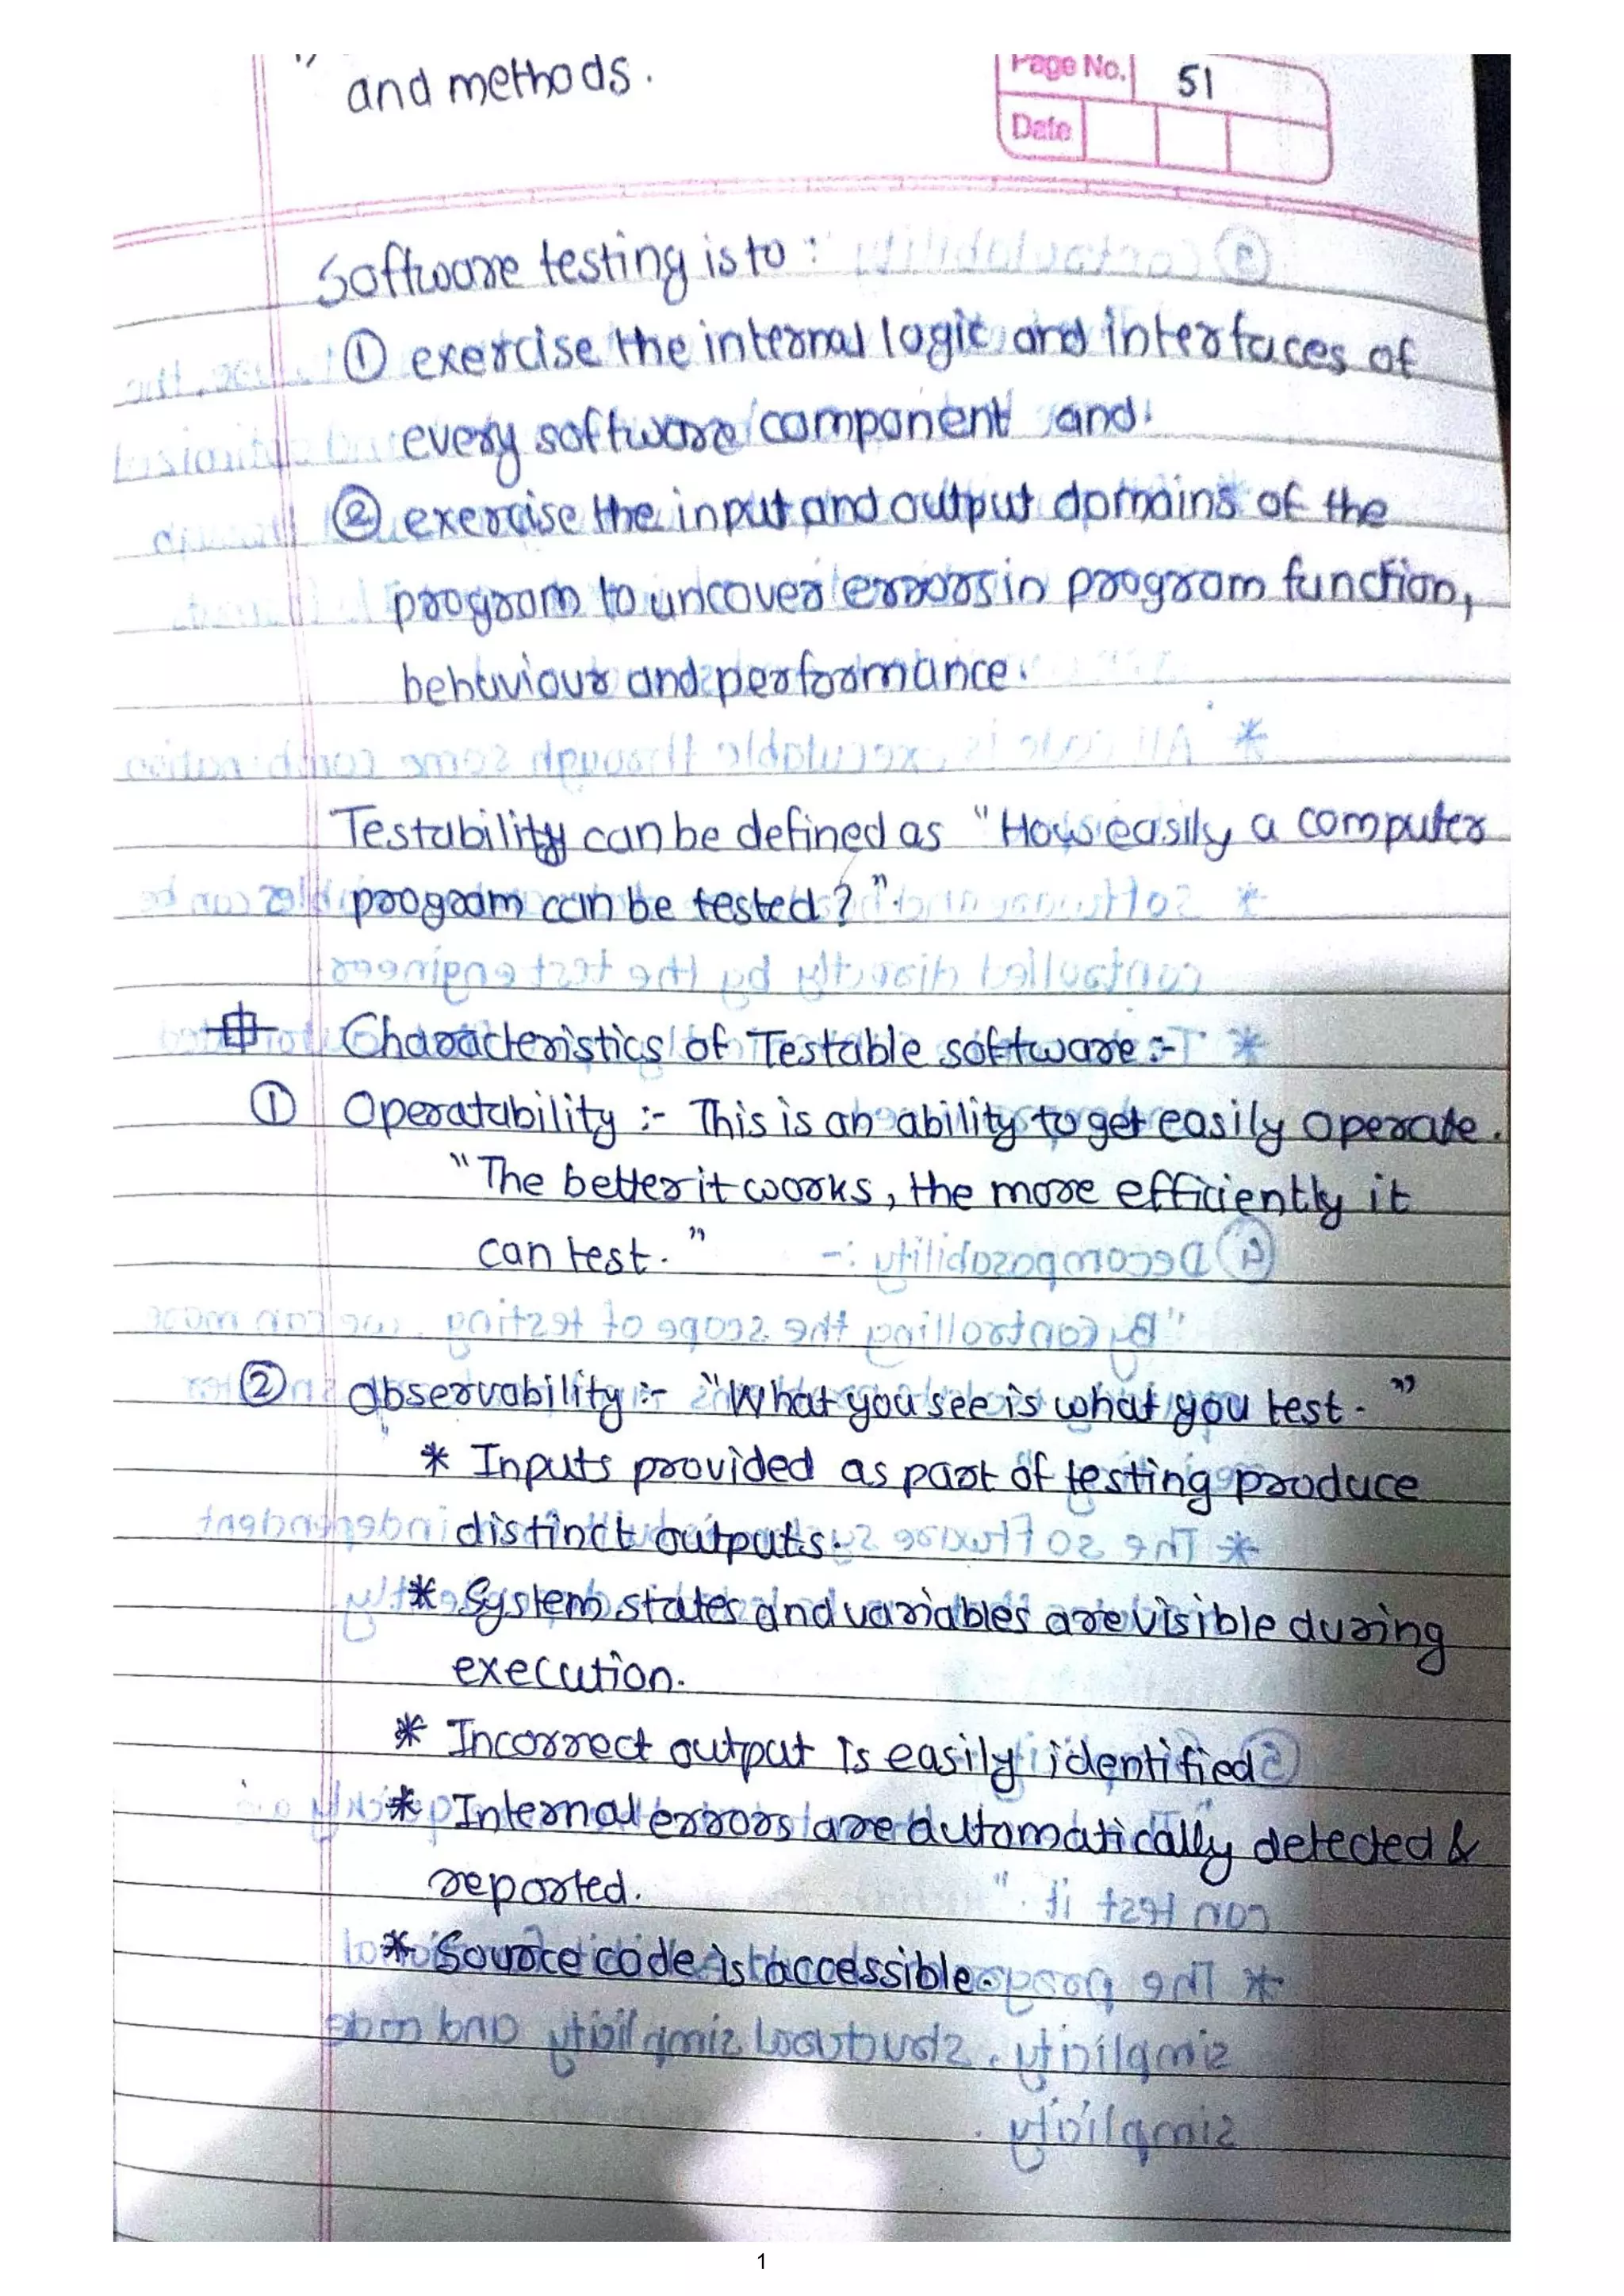 " and methods.
Page No. 51
Date
Software testing is to :
① exercise the internal logic and interfaces of
every software component and
② exercise the input and output domains of the
program to uncover errors in program function,
behaviour and performance.
Testability can be defined as "How easily a computer
program can be tested ?".
Characteristics of Testable software :-
① Operatability :- This is an ability to get easily operate.
"The better it works, the more efficiently it
can test. "
② Observability :- "What you see is what you test. "
* Inputs provided as part of testing produce
distinct outputs.
* System states and variables are visible during
execution.
* Incorrect output is easily identified
* Internal errors are automatically detected &
reported.
* Source code is accessible.
1